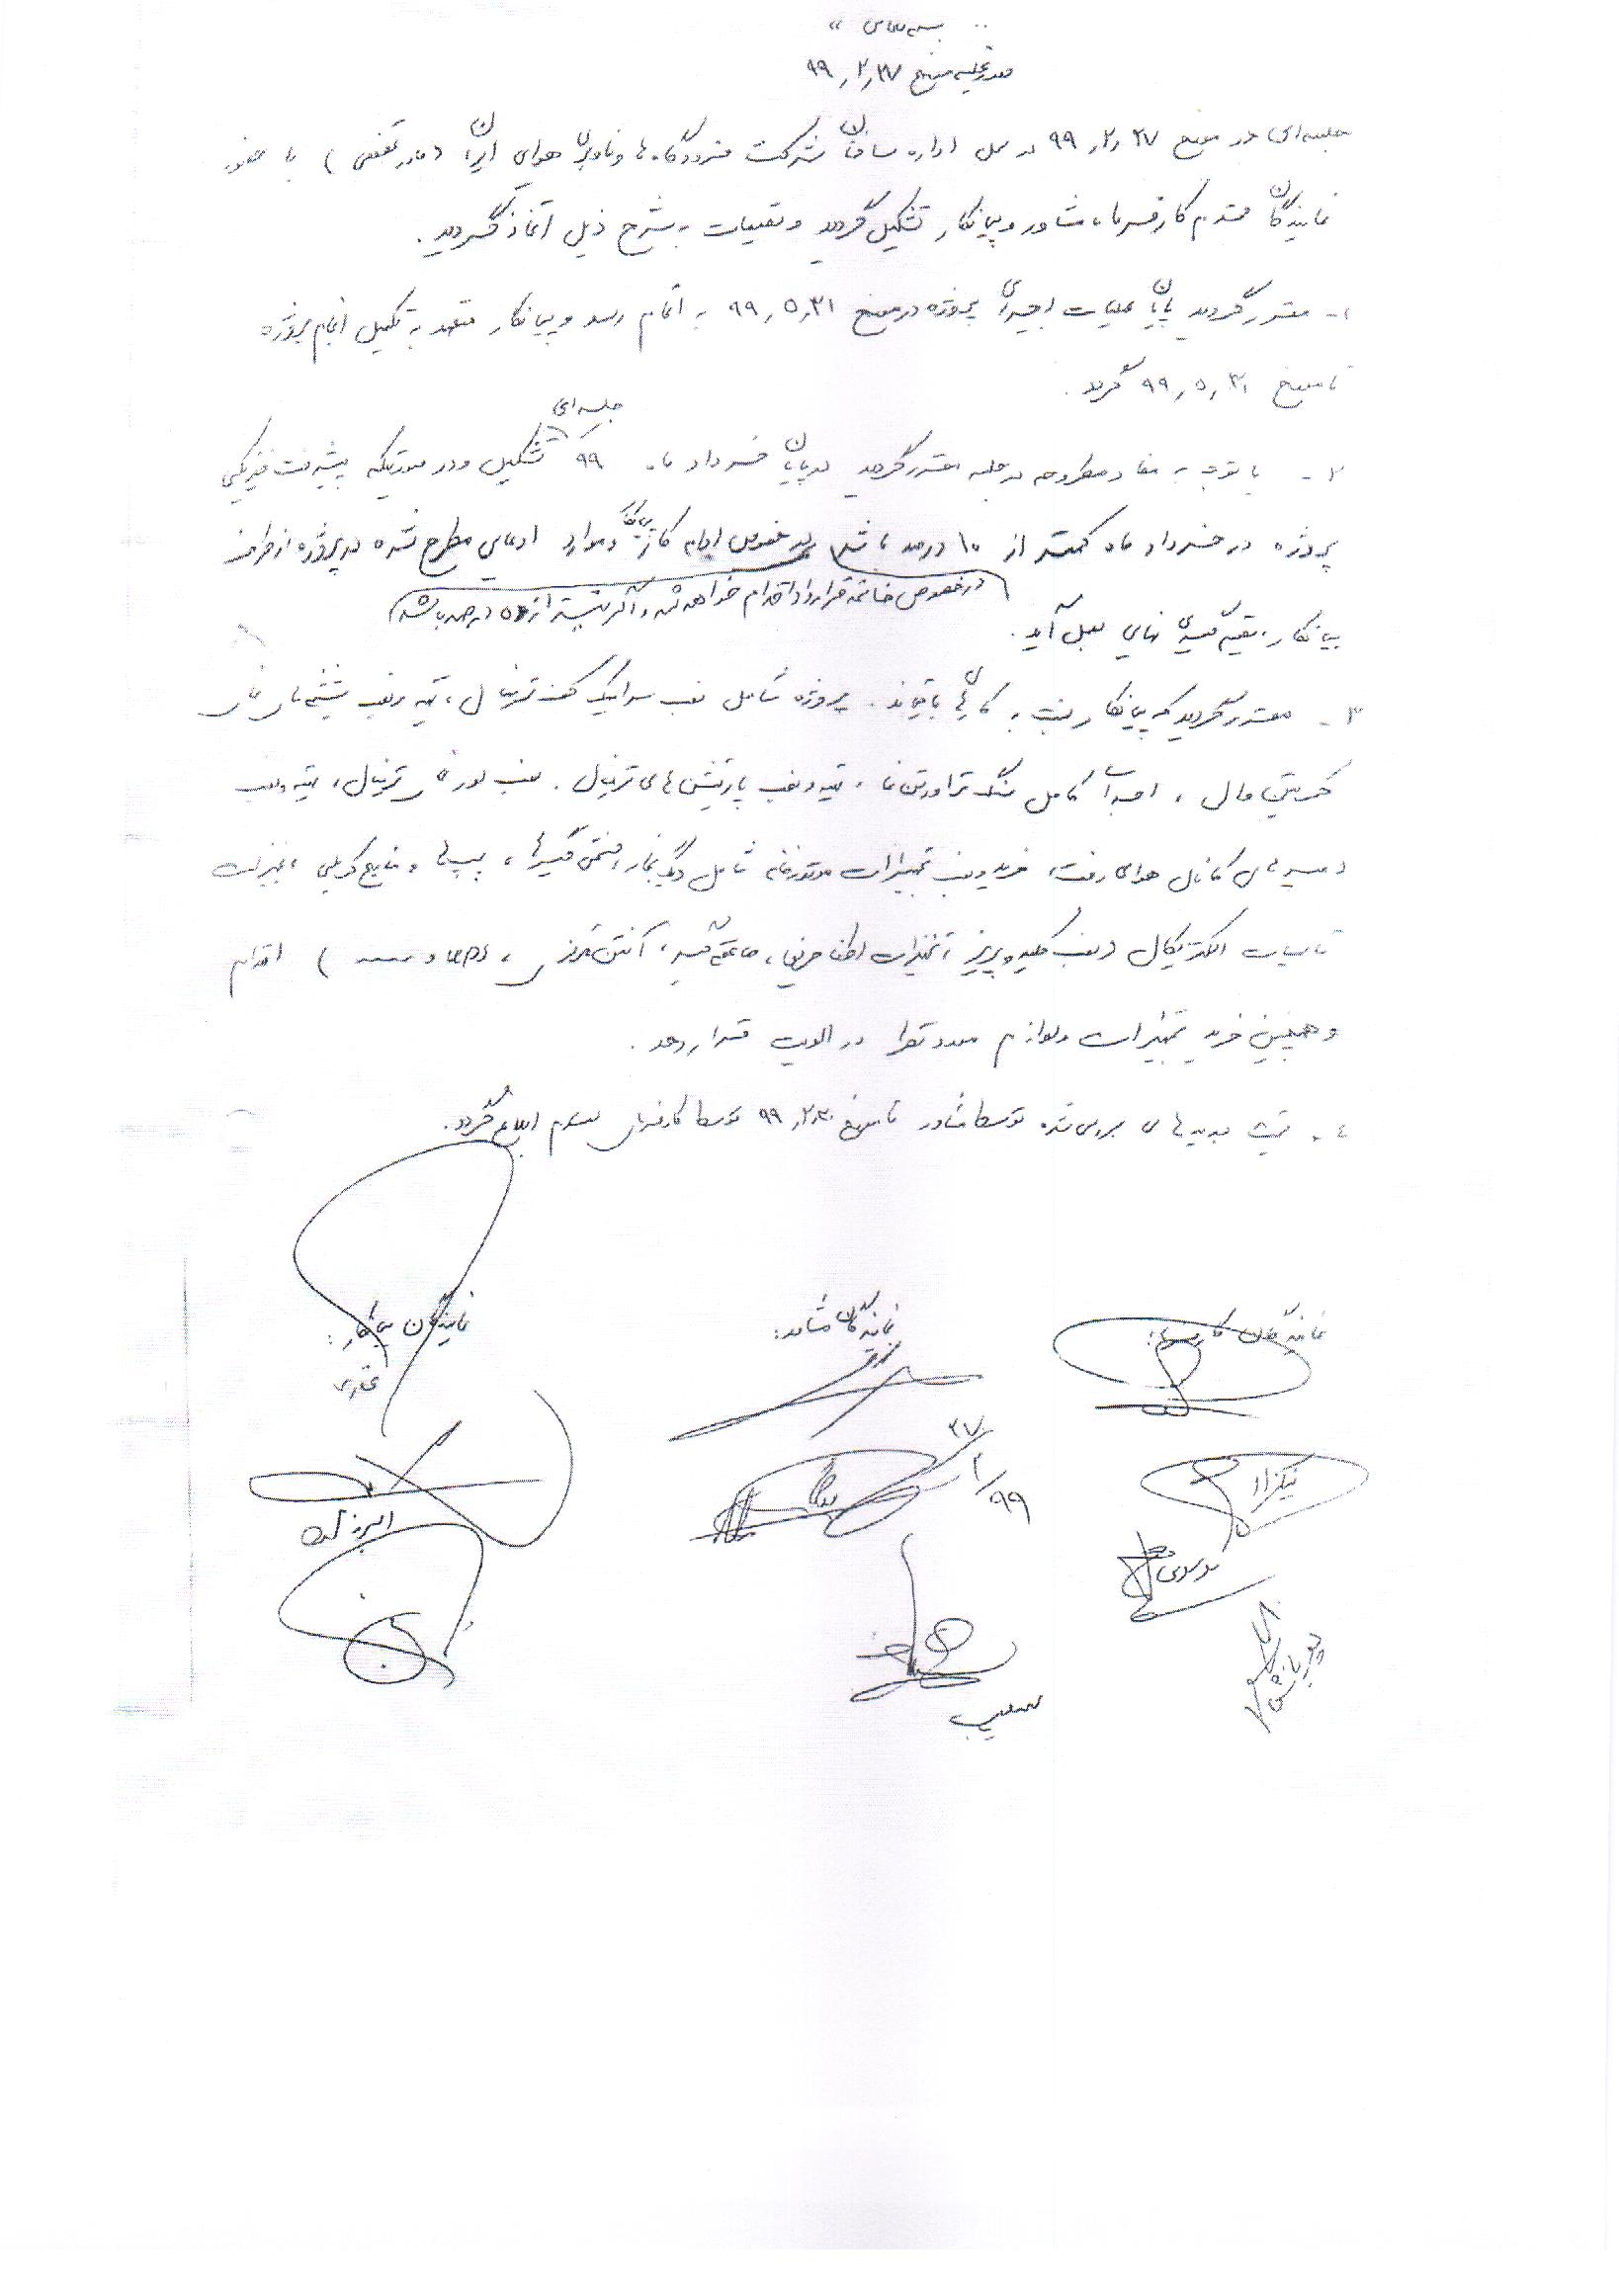 بسمه تعالی
صورتجلسه مورخ ۹۹,۲,۲۷
جلسه‌ای در مورخ ۹۹,۲,۲۷ در محل اداره ساختمان شرکت فرودگاه‌ها و ناوبری هوایی ایران (مادر تخصصی) با حضور
نمایندگان محترم کارفرما، مشاور و پیمانکار تشکیل گردید و تصمیمات به شرح ذیل اتخاذ گردید.
۱- مقرر گردید پایان عملیات اجرایی پروژه در مورخ ۹۹,۵,۳۱ به اتمام رسد و پیمانکار متعهد به تکمیل انجام پروژه
تا مورخ ۹۹,۵,۳۱ گردید.
جلسه‌ای
۲- با توجه به مفاد مطروحه در جلسه مقرر گردید در پایان خرداد ماه ۹۹ تشکیل و در صورتیکه پیشرفت فیزیکی
پروژه در خرداد ماه کمتر از ۱۰ درصد باشد در خصوص اتمام کار پیمانکار و موارد ادعایی مطرح شده در پروژه از طرف
در خصوص خاتمه قرارداد اقدام خواهد شد و اگر بیشتر از ۱۰ درصد باشد
پیمانکار، تصمیم‌گیری نهایی بعمل آید.
۳- مقرر گردید که پیمانکار نسبت به کارهای باقیمانده پروژه شامل نصب سرامیک کف ترمینال، تهیه و نصب شیشه‌های نمای
کرتین وال، اجرای کامل سنگ تراورتن نما، تهیه و نصب پارتیشن‌های ترمینال، نصب لوور نمای ترمینال، تهیه و نصب
مسیرهای کانال هوای رفت، خرید و نصب تجهیزات موتورخانه شامل دیگ بخار، سختی گیرها، پمپ‌ها و منابع کویلی، تجهیزات
تاسیسات الکتریکال (نصب کلید و پریز، تجهیزات اطفا حریق، صاعقه گیر، آنتن مرکزی، ups و ......) اقدام
و همچنین خرید تجهیزات و لوازم مورد نظر را در الویت قرار دهد.
۴- قیمت جدیدهای بررسی شده توسط مشاور تا مورخ ۹۹,۲,۳۰ توسط کارفرمای محترم ابلاغ گردد.
نمایندگان کارفرما: نمایندگان مشاور: نمایندگان پیمانکار:
۲۷/۲/۹۹
نیکزاد
موسوی
پوربافقی